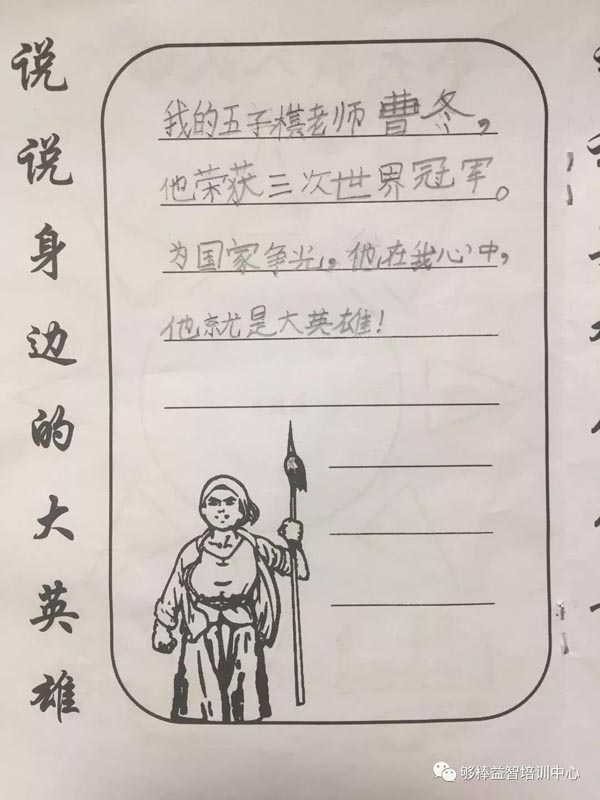 说说身边的大英雄
我的五子棋老师曹冬，
他荣获三次世界冠军。
为国家争光，他在我心中，
他就是大英雄！
够棒益智培训中心